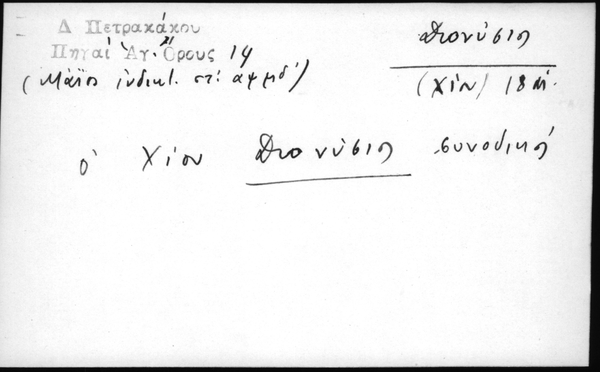 Δ Πετρακάκου
Πηγαί Ἁγ. Ὄρους 14
(Μάϊος ἰνδικτ. στ! αψμδ')
Διονύσιος
(Χίου) 18 αἰ.
ὁ Χίου Διονύσιος συνοδικῇ